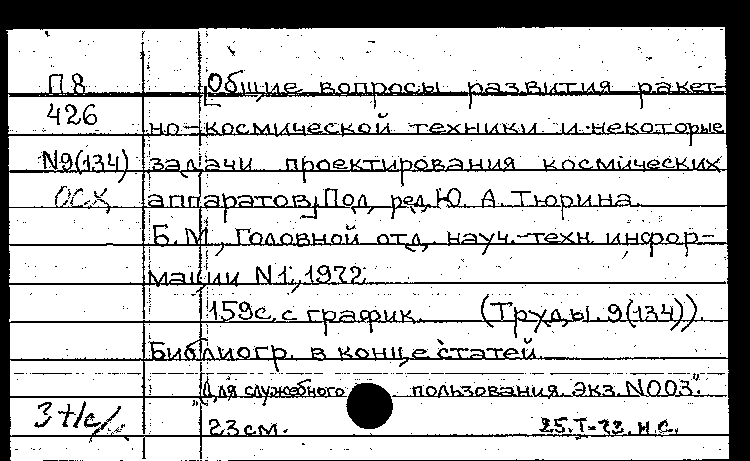 П8
426
N9(134)
ОСХ
[Общие вопросы развития ракет-
но-космической техники и некоторые
задачи проектирования космических
аппаратов]. Под ред. Ю. А. Тюрина.
Б.М., Головной отд. науч.-техн. инфор-
мации N1, 1972
159с. с график. (Труды. 9(134)).
Библиогр. в конце статей
"Для служебного пользования. Экз. N003".
23см. 25.I-73. н.с.